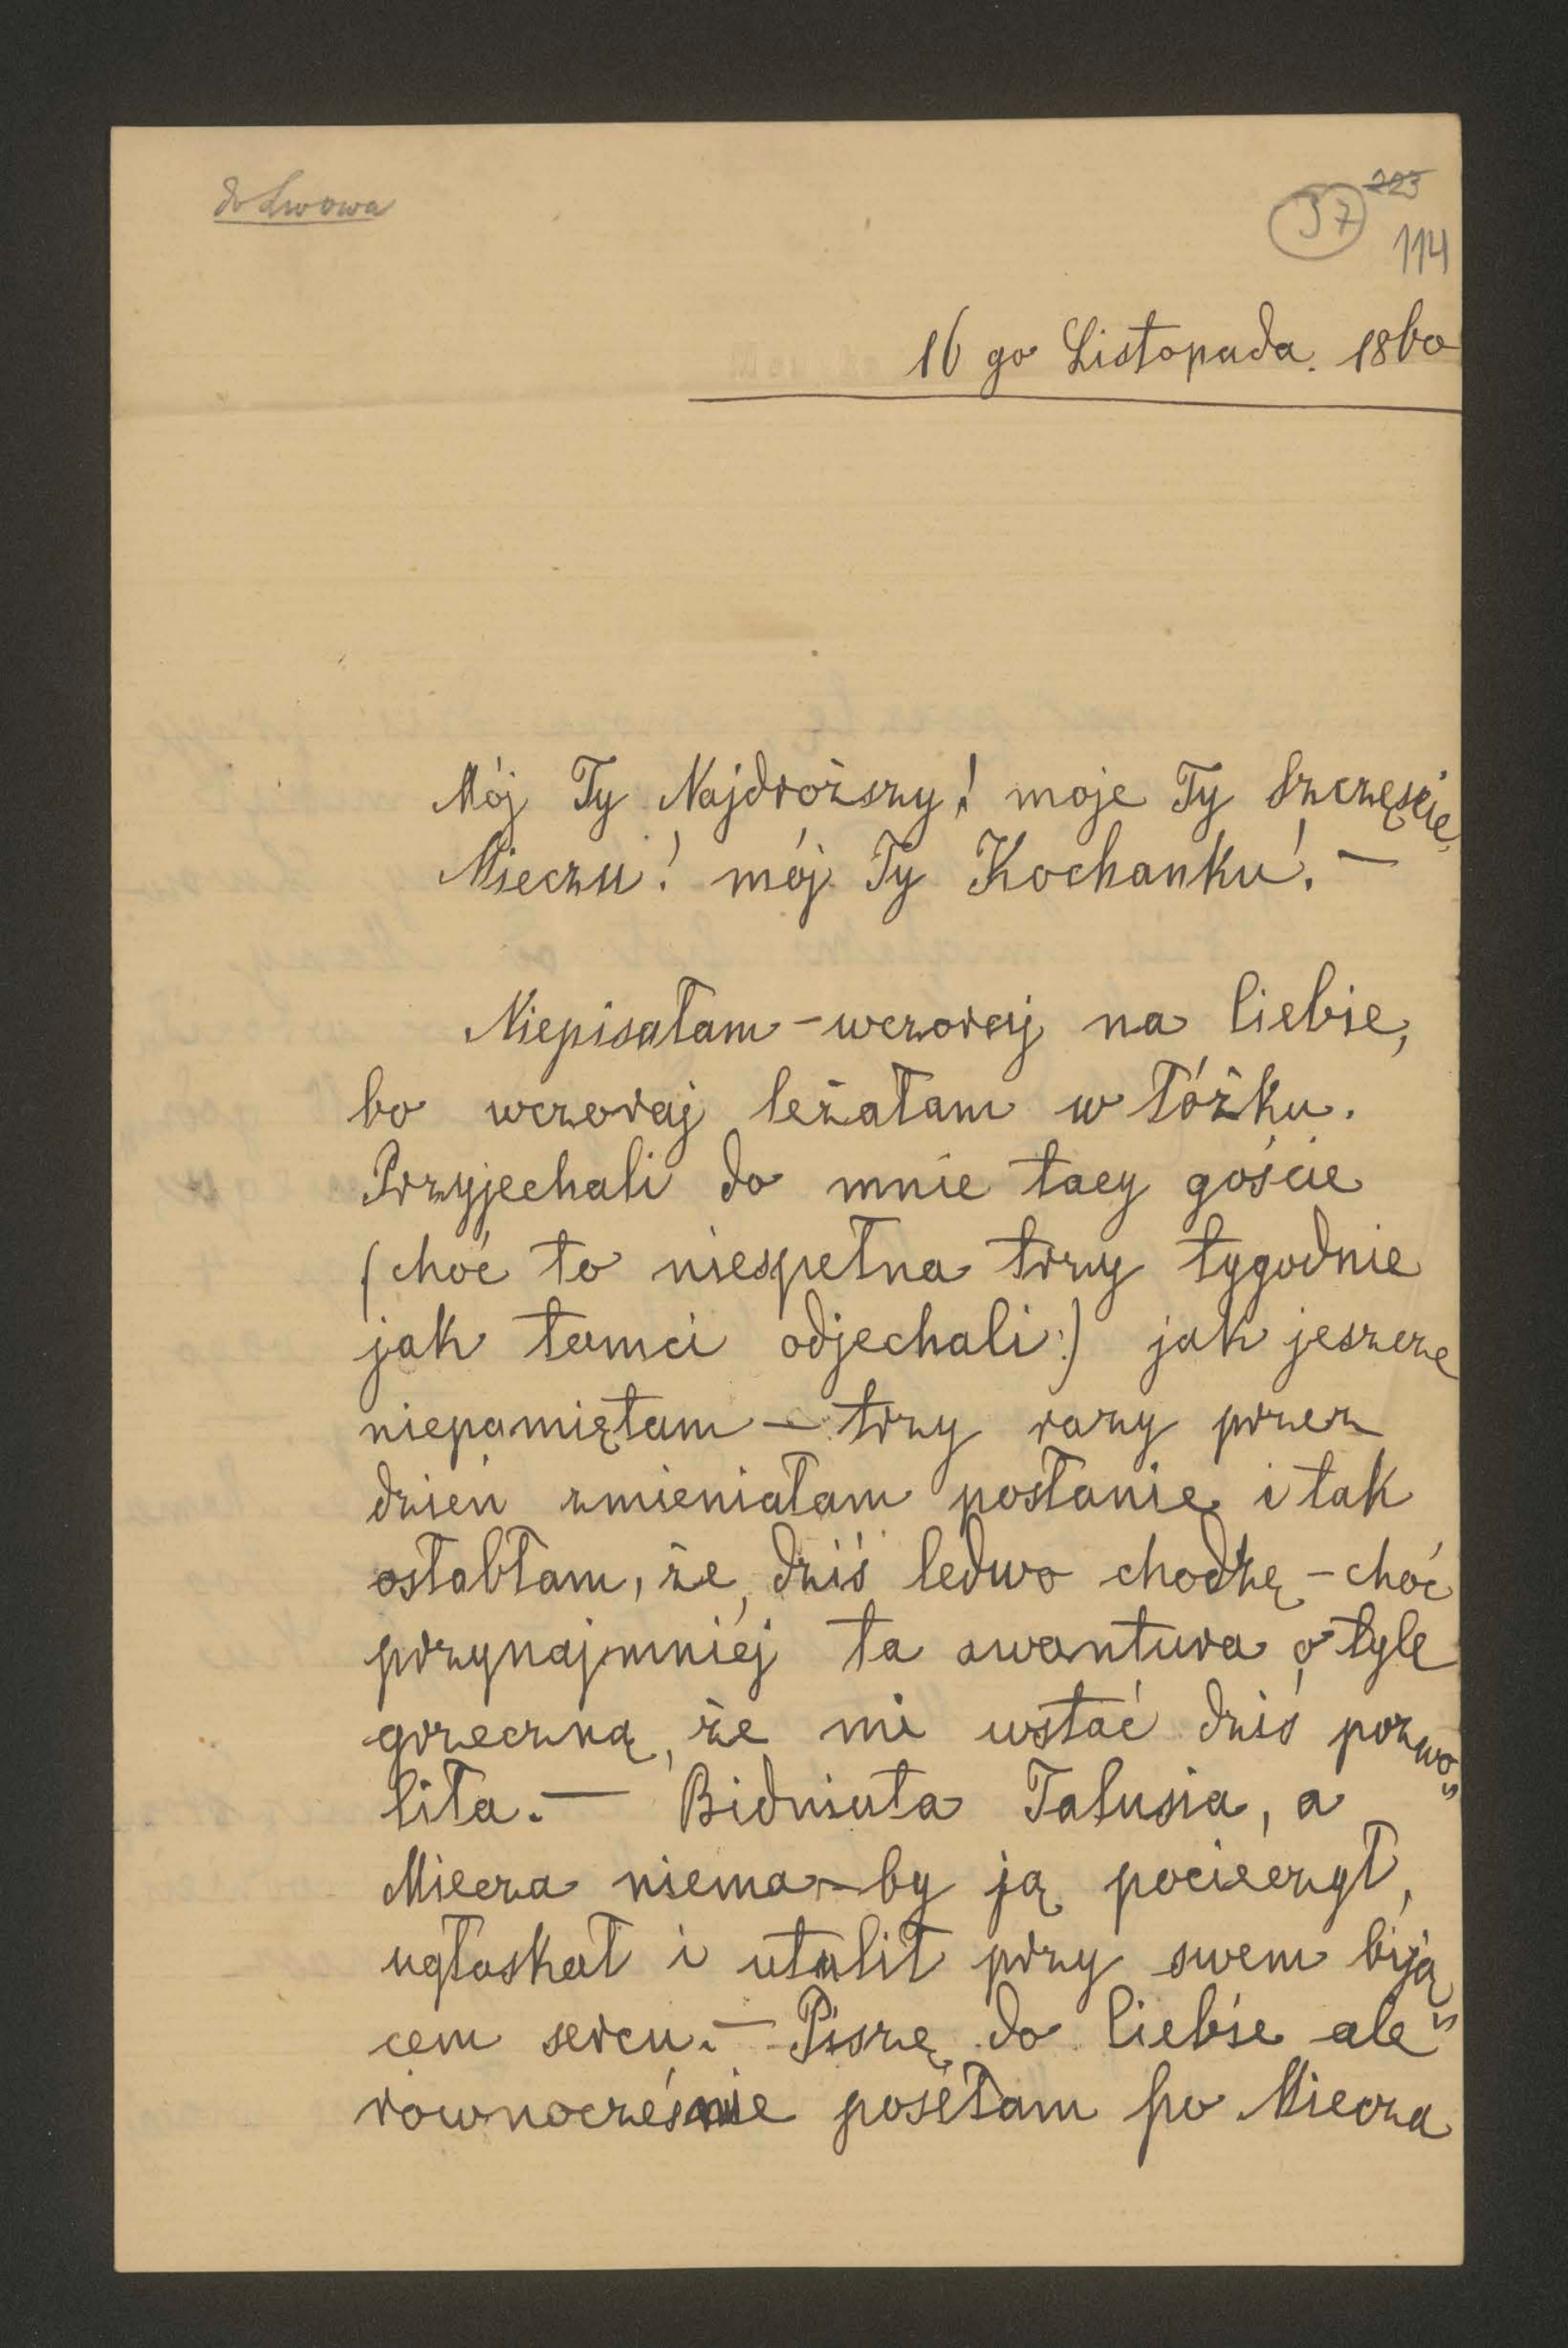 do Lwowa
223
37
114
16 go Listopada. 1860
Mój Ty Najdroższy! moje Ty Szczęście,
Mieczu! mój Ty Kochanku! —
Niepisałam – wczoraj na Ciebie,
bo wczoraj leżałam w łóżku.
Przyjechali do mnie tacy goście
(choć to niespełna trzy tygodnie
jak tamci odjechali:) jak jeszcze
niepamiętam – trzy razy przez
dzień zmieniałam posłanie i tak
osłabłam, że, dziś ledwo chodzę – choć
przynajmniéj ta awantura o tyle
grzeczną, że mi wstać dziś pozwo„
liła. — Bidniuła Talusia, a
Miecza niema – by ją pocieczył,
ugłaskał i utulił przy swem biją„
cem sercu. — Piszę do Ciebie ale
równocześnie posełam po Miecza